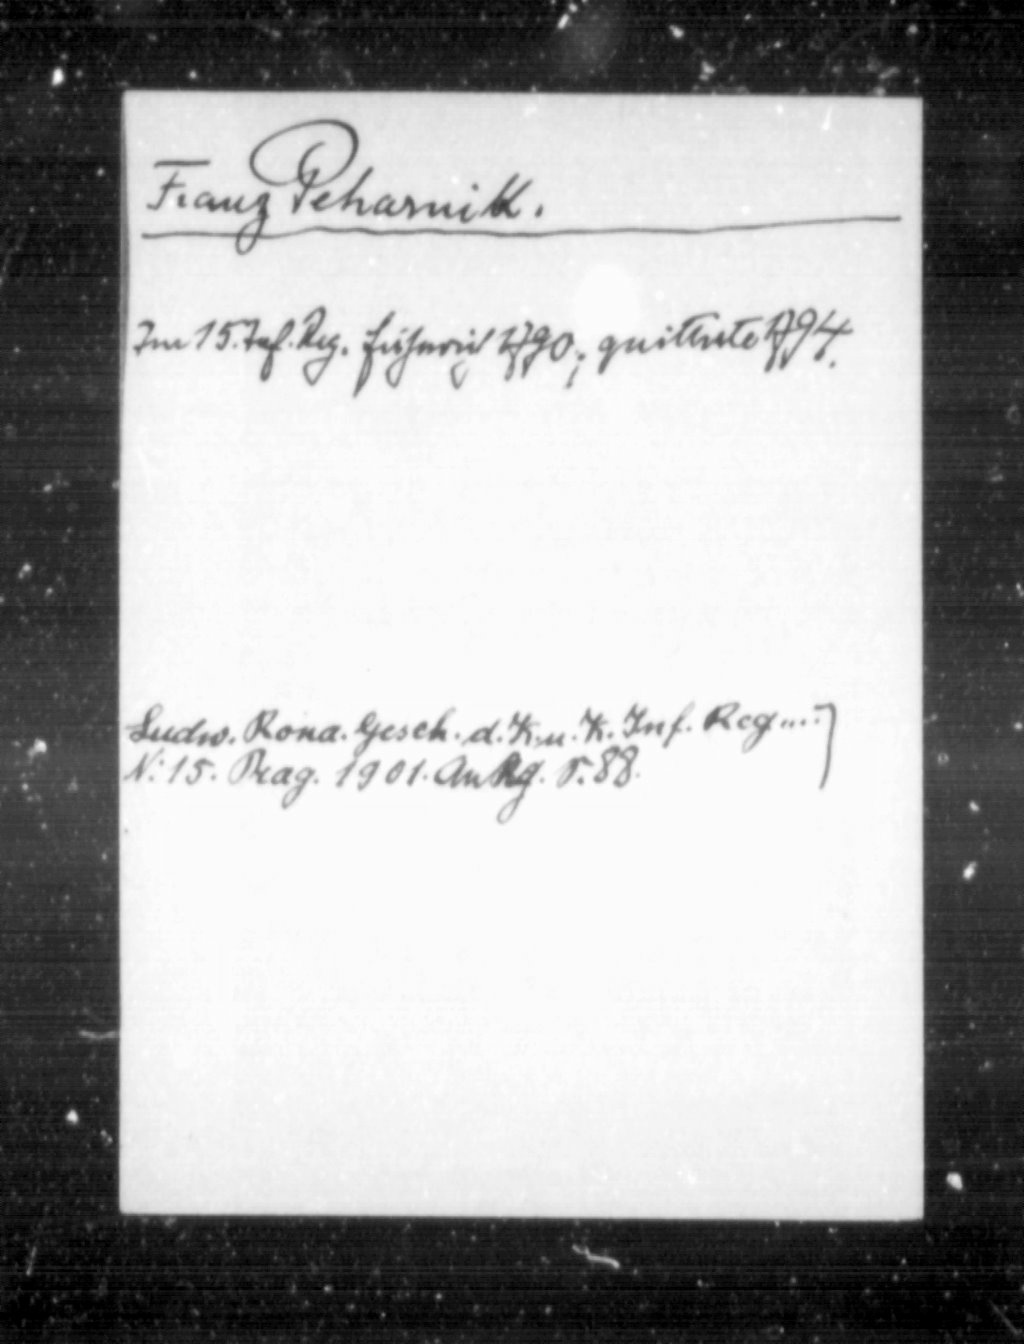 Franz Peharnik.
Im 15. Inf. Reg. Fähnrich 1790; quittirte 1794.
Ludw. Rona. Gesch. d. K. u. K. Inf. Reg....
N: 15. Prag. 1901. Anhg. S. 88.